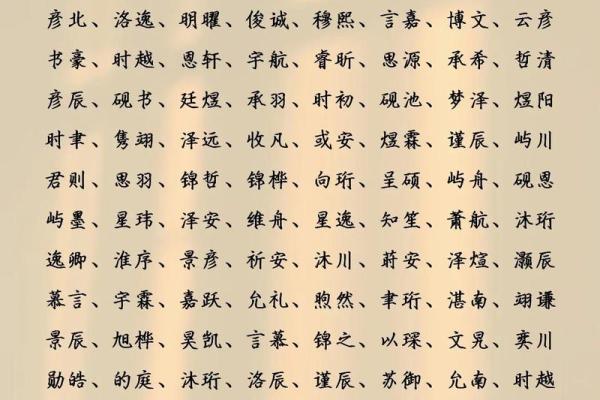 彦北、洛逸、明曜、俊诚、穆熙、言嘉、博文、云彦
书豪、时越、恩轩、宇航、睿昕、思源、承希、哲清
彦辰、砚书、廷煜、承羽、时初、砚池、梦泽、煜阳
时聿、隽翊、泽远、收凡、或安、煜霖、谨辰、屿川
君则、思羽、锦哲、锦桦、向珩、呈硕、屿舟、砚恩
屿墨、星玮、泽安、维舟、星逸、知笙、萧航、沐珩
逸卿、淮序、景彦、祈安、沐川、蔚安、泽煊、灏辰
慕言、宇霖、嘉跃、允礼、煦然、聿珩、湛南、翊谦
景辰、旭桦、昊凯、言慕、锦之、以琛、文晃、奕川
勋皓、的庭、沐珩、洛辰、谨辰、苏御、允南、时越